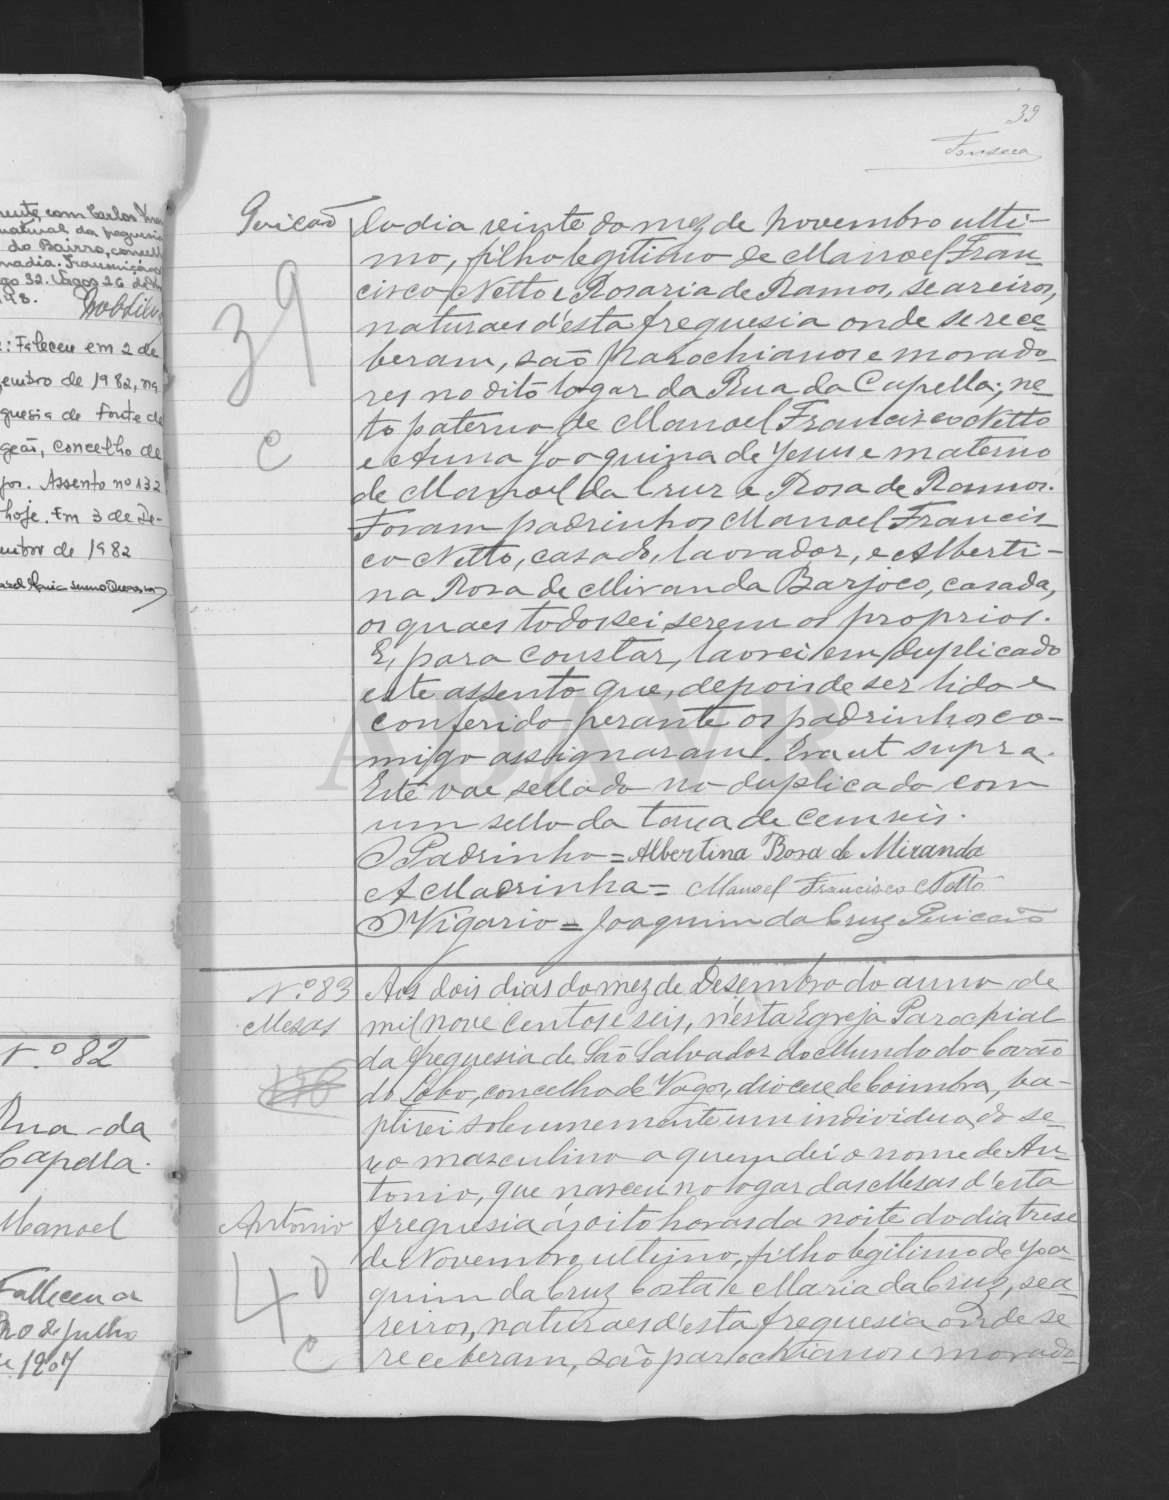 39
Fonseca
do dia vinte do mez de Novembro ulti-
mo, filho legitimo de Manoel Fran-
cisco Netto e Rosaria de Ramos, seareiros,
naturaes d'esta freguesia onde se rece-
beram, são parochianos e morado-
res no dito logar da Rua da Capella; ne-
to paterno de Manoel Francisco Netto
e Anna Joaquina de Jesus e materno
de Manoel da Cruz e Rosa de Ramos.
Foram padrinhos Manoel Francis-
co Netto, casado, lavrador, e Alberti-
na Rosa de Miranda Barjoco, casada,
os quaes todos sei serem os proprios.
E, para constar, lavrei em duplicado
este assento que, depois de ser lido e
conferido perante os padrinhos co-
migo assignaram. Era ut supra.
Este vae sellado no duplicado com
um sello da taxa de cem reis.
O Padrinho = Albertina Rosa de Miranda
A Madrinha = Manoel Francisco Netto
O Vigario = Joaquim da Cruz Pericão
Pericão
39
C
Nº 83
Mesas
Antonio
40
C
Aos dois dias do mez de Desembro do anno de
mil nove centos e seis, n'esta Egreja Parochial
da freguesia de São Salvador do Mundo do Covão
do Lobo, concelho de Vagos, diocese de Coimbra, ba-
ptisei solemnemente um individuo do se-
xo masculino a quem dei o nome de An-
tonio, que nasceu no logar das Mesas d'esta
freguesia ás oito horas da noite do dia trese
de Novembro ultimo, filho legitimo de Joa-
quim da Cruz Costa e Maria da Cruz, sea-
reiros, naturaes d'esta freguesia onde se
receberam, são parochianos e morado-
com Carlos
natural da freguesia
do Bairro, concelh
nadia.
: Faleceu em 2 de
embro de 1982, na
guesia de Fonte de
geão, Concelho de
Assento nº 132
hoje. Em 3 de De-
embro de 1982
Nº 82
Rua da
Capella.
Manoel
Falleceu a
20 de julho
de 1907
ADAVR